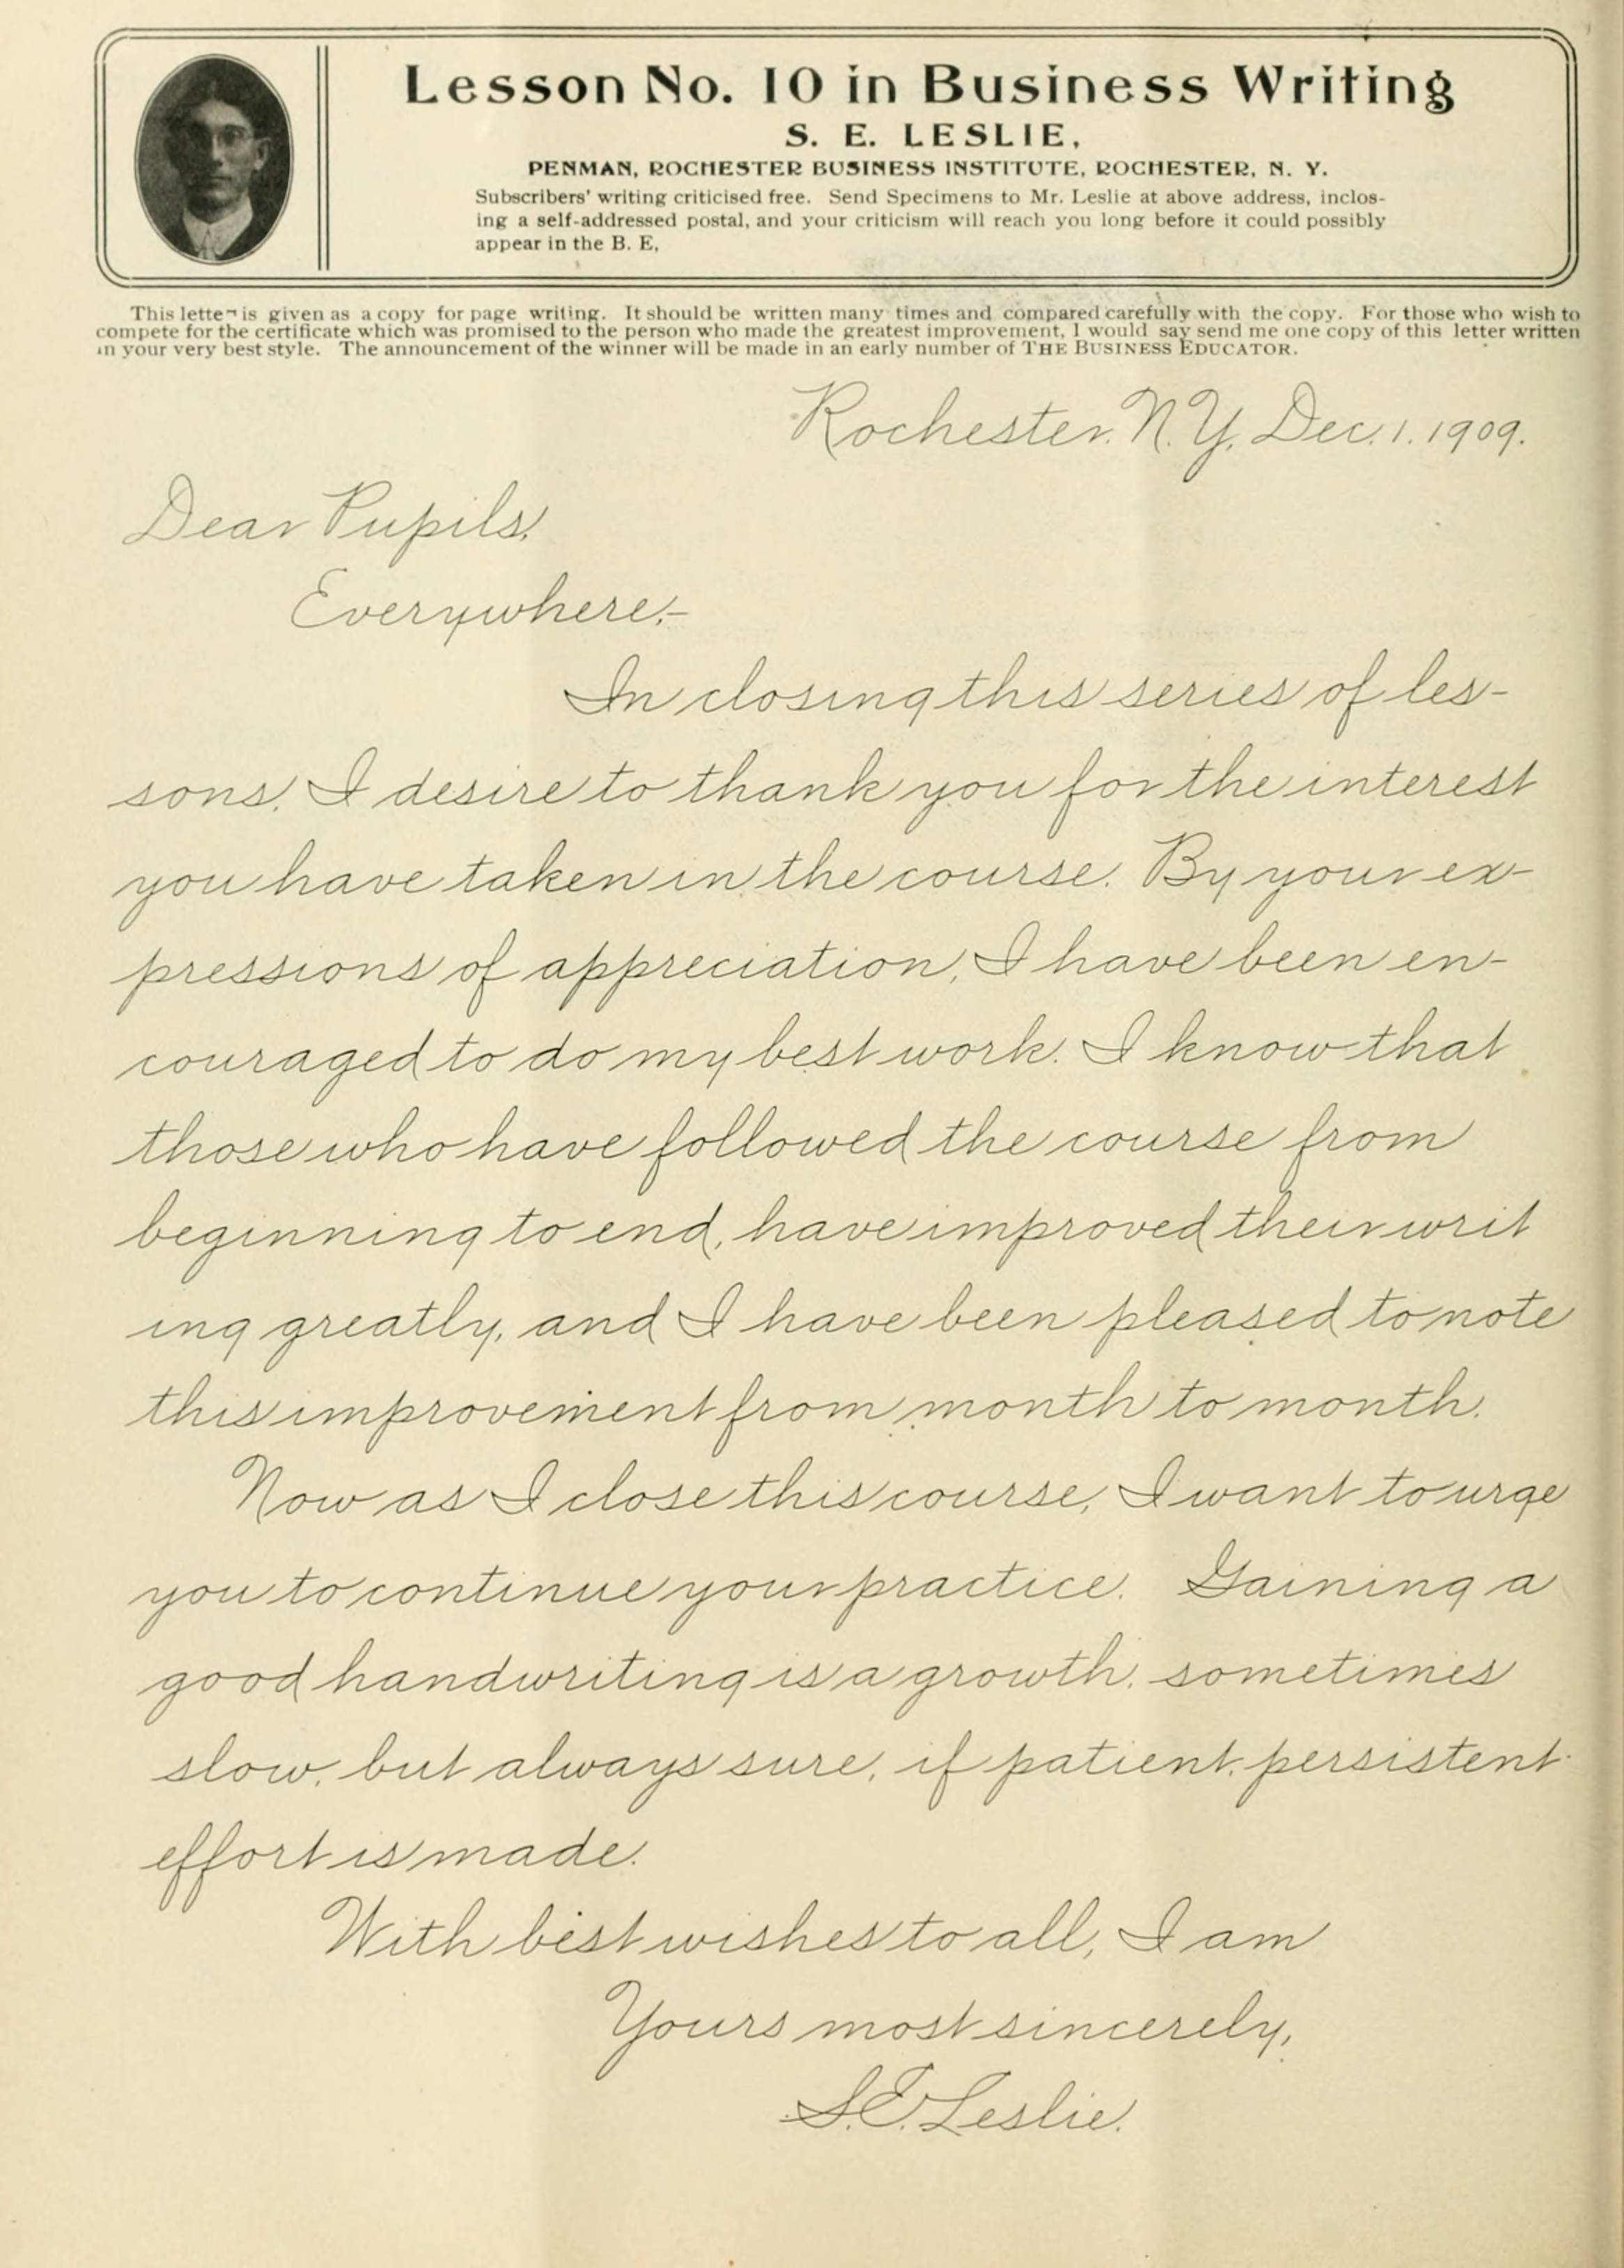 Lesson No. 10 in Business Writing
S. E. LESLIE,
PENMAN, ROCHESTER BUSINESS INSTITUTE, ROCHESTER, N. Y.
Subscribers' writing criticised free. Send Specimens to Mr. Leslie at above address, inclos-
ing a self-addressed postal, and your criticism will reach you long before it could possibly
appear in the B. E.
This letter is given as a copy for page writing. It should be written many times and compared carefully with the copy. For those who wish to
compete for the certificate which was promised to the person who made the greatest improvement, I would say send me one copy of this letter written
in your very best style. The announcement of the winner will be made in an early number of THE BUSINESS EDUCATOR.
Rochester, N. Y., Dec. 1, 1909.
Dear Pupils,
Everywhere:-
In closing this series of les-
sons, I desire to thank you for the interest
you have taken in the course. By your ex-
pressions of appreciation, I have been en-
couraged to do my best work. I know that
those who have followed the course from
beginning to end, have improved their writ
ing greatly, and I have been pleased to note
this improvement from month to month.
Now as I close this course, I want to urge
you to continue your practice. Gaining a
good handwriting is a growth, sometimes
slow, but always sure, if patient, persistent
effort is made.
With best wishes to all, I am
Yours most sincerely,
S. E. Leslie.